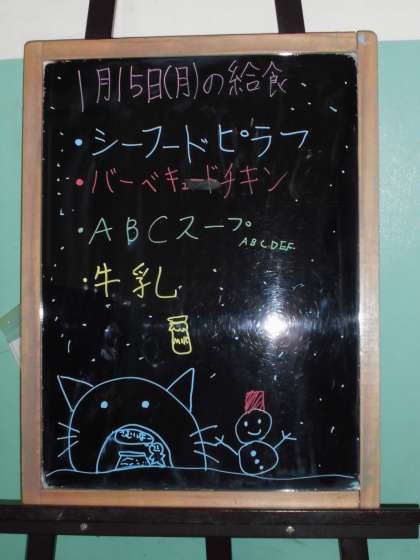 1月15日(月)の給食
・シーフードピラフ
・バーベキュードチキン
・ABCスープ
ABCDEF
・牛乳
MILK